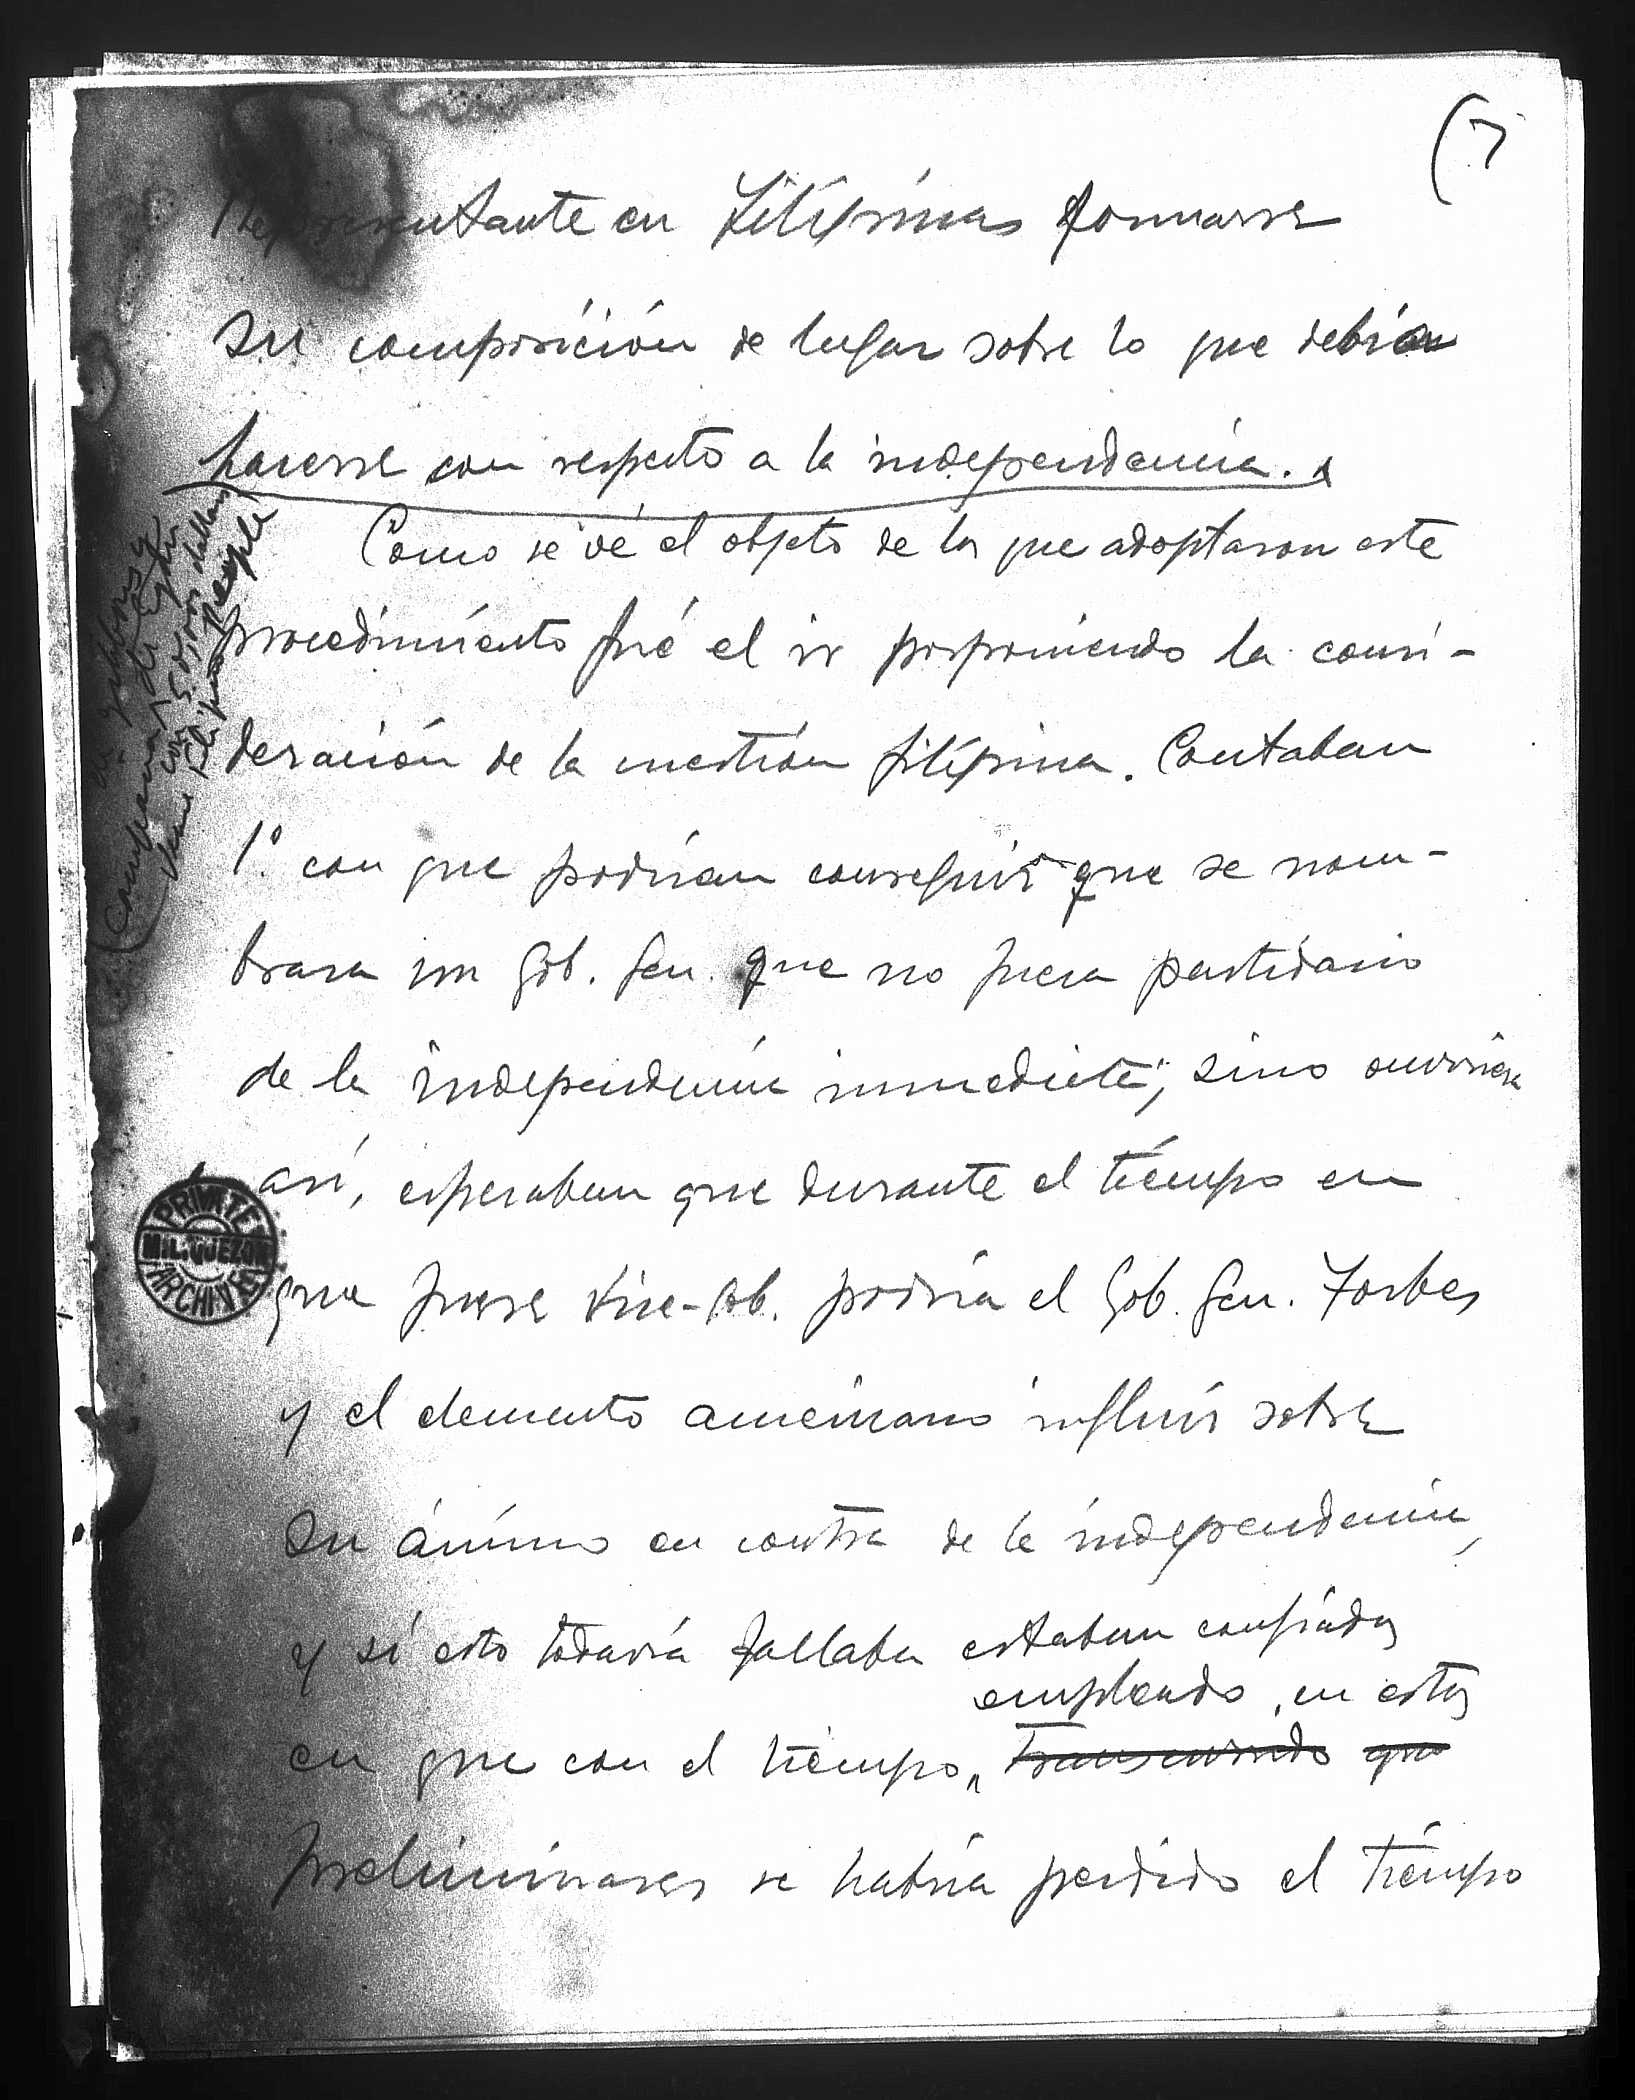 (7
Representante en Filipinas formarse
su composición de lugar sobre lo que debía
hacerse con respecto a la independencia.
Como se vé el objeto de los que adoptaron este
procedimiento fué el ir posponiendo la consi-
deración de la cuestión filipina. Contaban
1.º con que podrían conseguir que se nom-
brara un Gob. Gen. que no fuera partidario
de la independencia inmediata; sino ocurriera
así, esperaban que durante el tiempo en
que fuese Vice-Gob. podría el Gob. Gen. Forbes
y el elemento americano influir sobre
su ánimo en contra de la independencia,
y sí esto todavía fallaba estaban confiados
empleado, en estos
en que con el tiempo, transcurrido que
preliminares se habría perdido el tiempo
PRIVATE
M.L. QUEZON
ARCHIVE